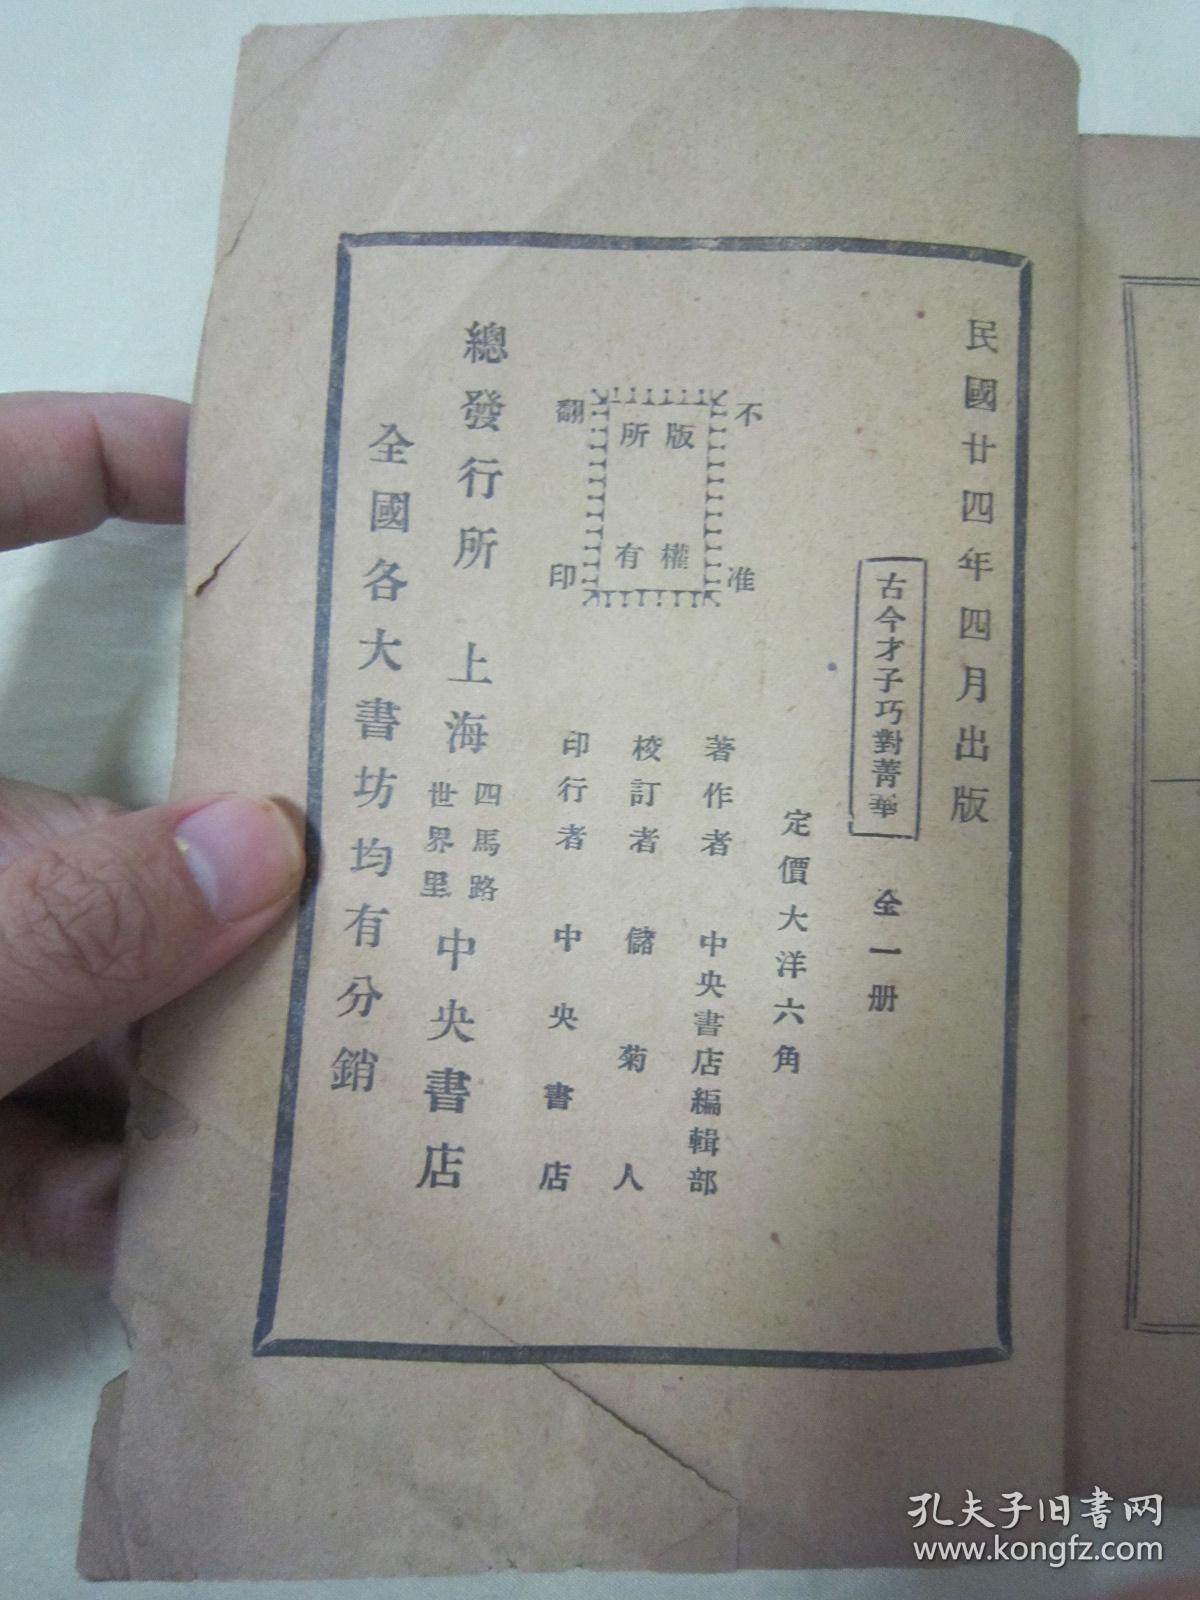 民國廿四年四月出版
古今才子巧對菁華
全一册
定價大洋六角
不准翻印
版權所有
著作者 中央書店編輯部
校訂者 儲菊人
印行者 中央書店
總發行所 上海 四馬路 世界里 中央書店
全國各大書坊均有分銷
孔夫子旧书网
www.kongfz.com